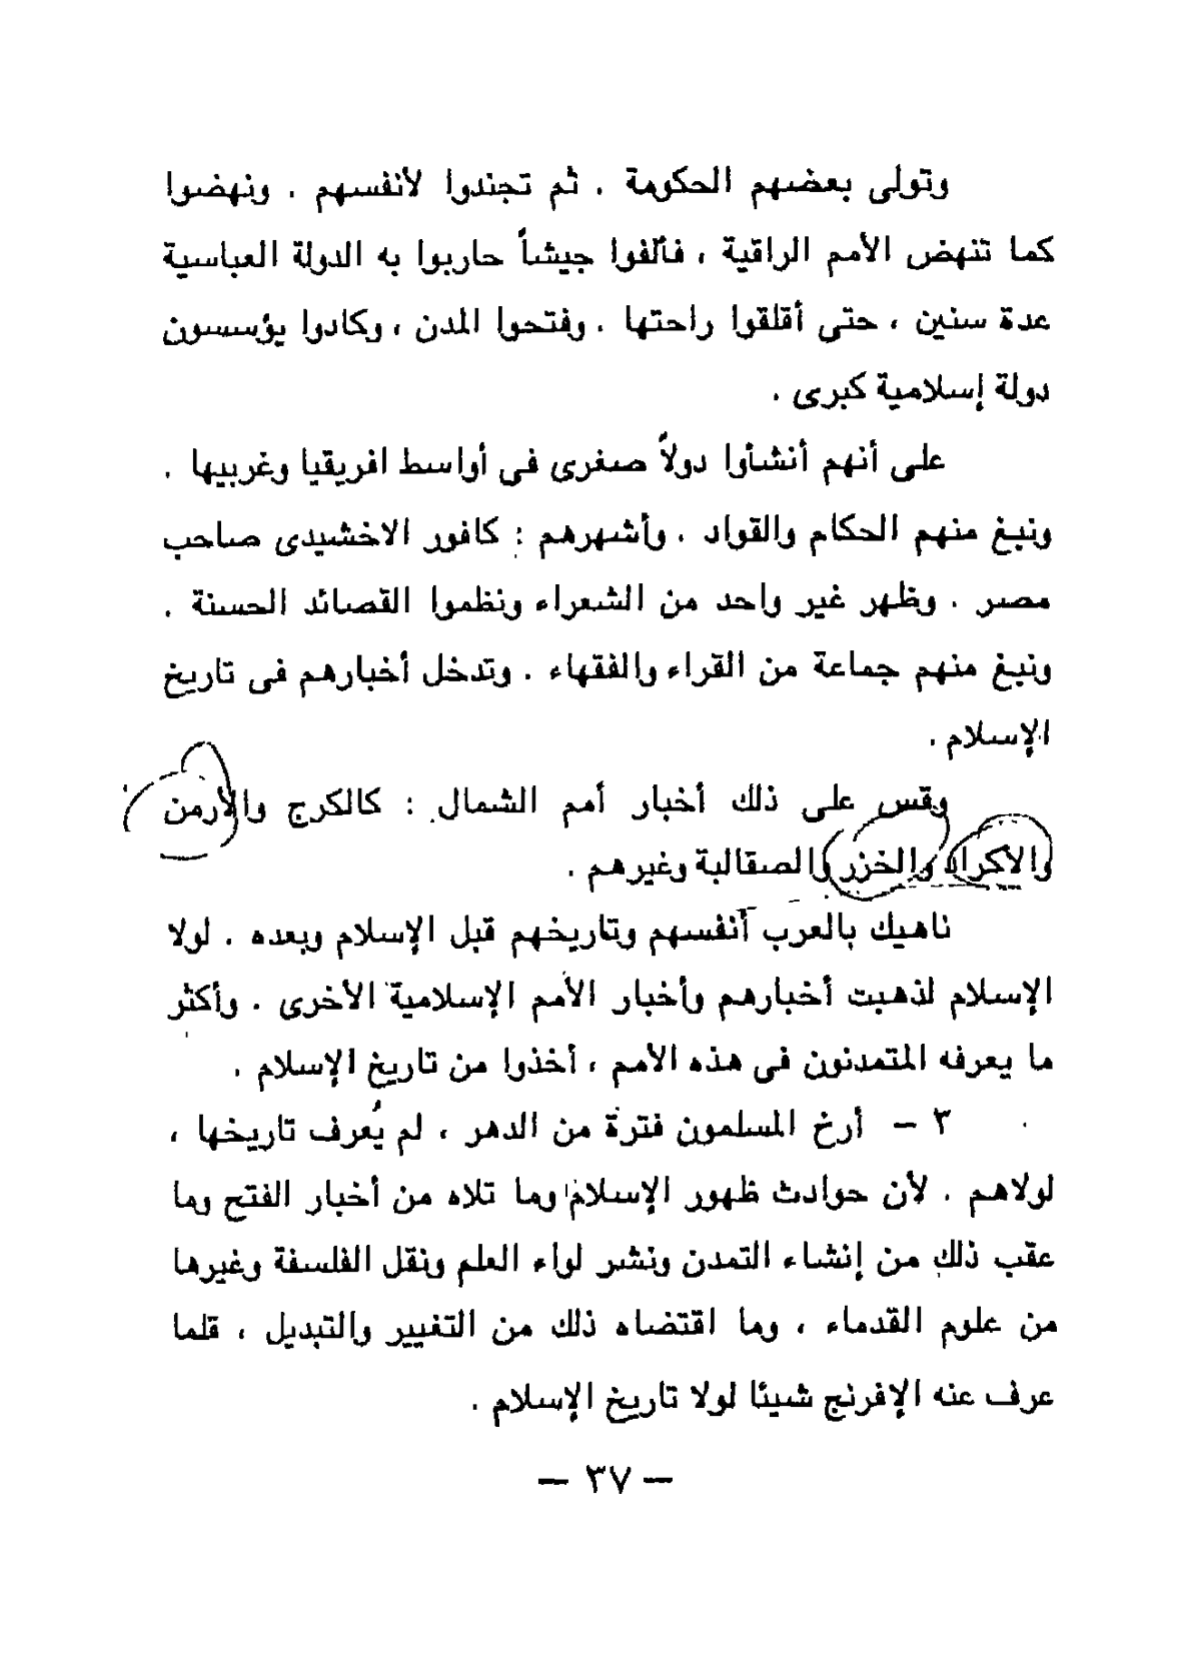 وتولى بعضهم الحكومة . ثم تجندوا لأنفسهم . ونهضوا
كما تنهض الأمم الراقية ، فألفوا جيشاً حاربوا به الدولة العباسية
عدة سنين ، حتى أقلقوا راحتها . وفتحوا المدن ، وكادوا يؤسسون
دولة إسلامية كبرى .
على أنهم أنشأوا دولاً صغرى فى أواسط افريقيا وغربيها .
ونبغ منهم الحكام والقواد . وأشهرهم : كافور الاخشيدى صاحب
مصر . وظهر غير واحد من الشعراء ونظموا القصائد الحسنة .
ونبغ منهم جماعة من القراء والفقهاء . وتدخل أخبارهم فى تاريخ
الإسلام .
وقس على ذلك أخبار أمم الشمال : كالكرج والأرمن
والأكراد والخزر والصقالبة وغيرهم .
ناهيك بالعرب أنفسهم وتاريخهم قبل الإسلام وبعده . لولا
الإسلام لذهبت أخبارهم وأخبار الأمم الإسلامية الأخرى . وأكثر
ما يعرفه المتمدنون فى هذه الأمم ، أخذوا من تاريخ الإسلام .
٣ – أرخ المسلمون فترة من الدهر ، لم يُعرف تاريخها ،
لولاهم . لأن حوادث ظهور الإسلام وما تلاه من أخبار الفتح وما
عقب ذلك من إنشاء التمدن ونشر لواء العلم ونقل الفلسفة وغيرها
من علوم القدماء ، وما اقتضاه ذلك من التغيير والتبديل ، قلما
عرف عنه الإفرنج شيئا لولا تاريخ الإسلام .
— ٣٧ —